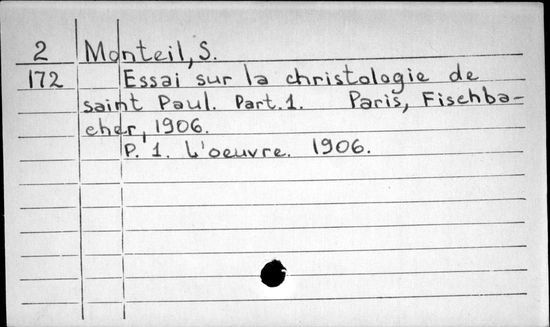 2 Monteil, S.
172 Essai sur la christologie de
saint Paul. Part. 1. Paris, Fischba-
cher, 1906.
P. 1. L'oeuvre. 1906.